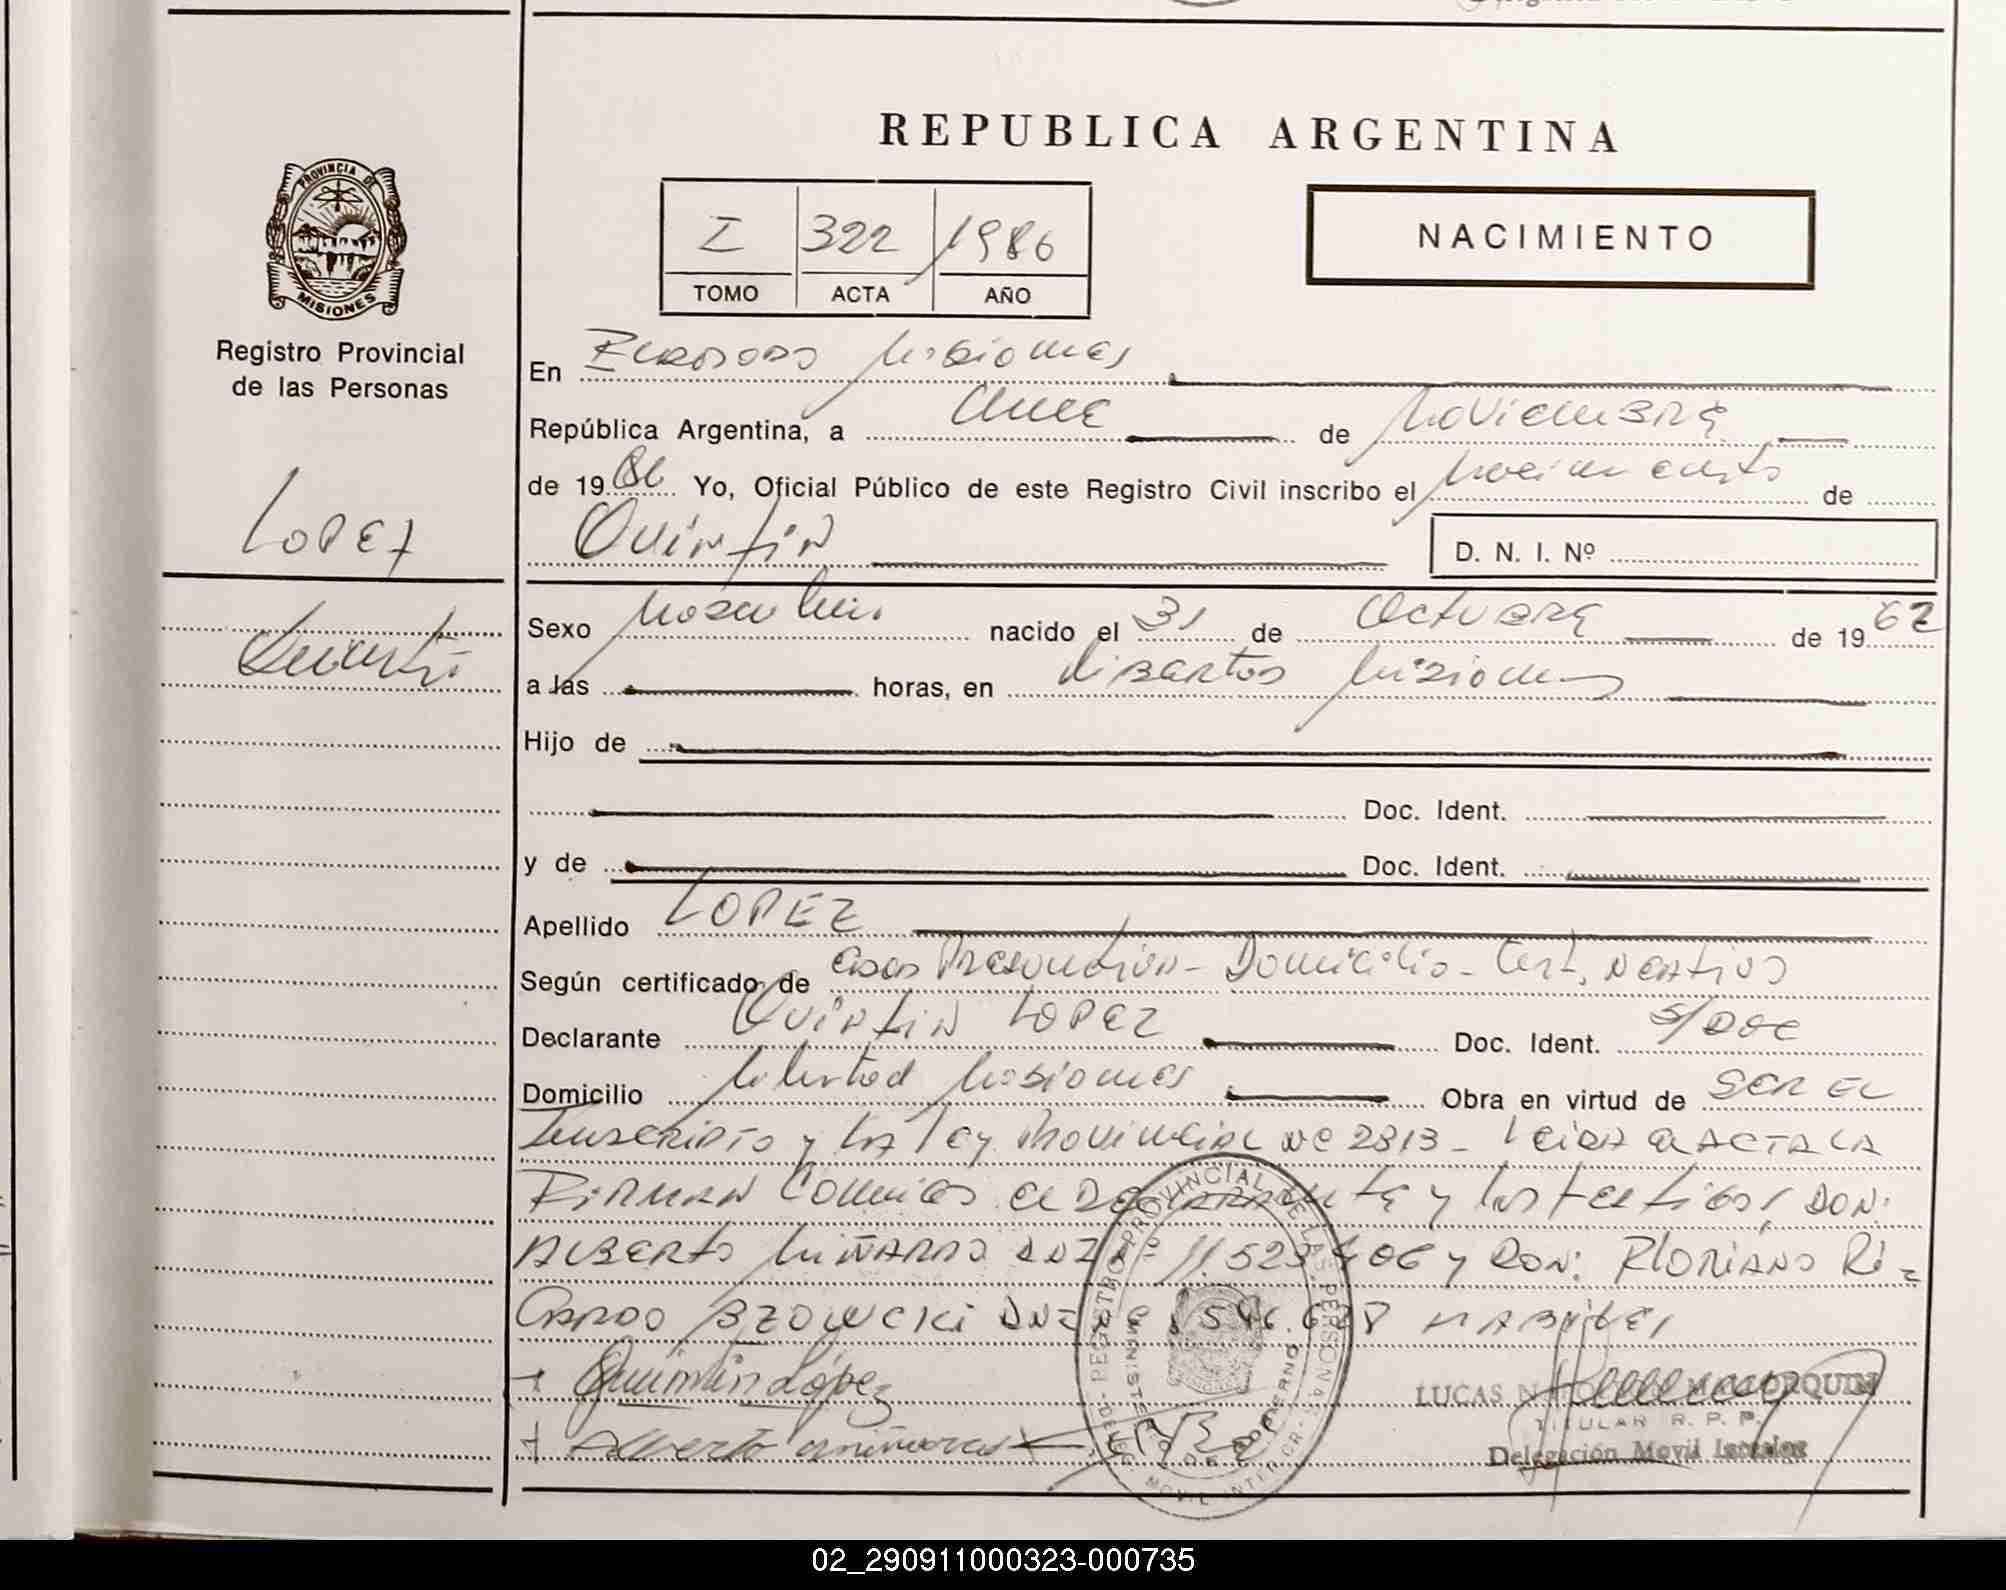 REPUBLICA ARGENTINA
PROVINCIA DE
MISIONES
Registro Provincial
de las Personas
I 322 1986
TOMO ACTA AÑO
NACIMIENTO
En Eldorado Misiones
República Argentina, a once de Noviembre
de 1986 Yo, Oficial Público de este Registro Civil inscribo el Nacimiento de
Quintin
D. N. I. Nº
LOPEZ
Quintin
Sexo Masculino nacido el 31 de Octubre de 1962
a las horas, en Libertad Misiones
Hijo de
Doc. Ident.
y de Doc. Ident.
Apellido LOPEZ
Según certificado de Presunción - Domicilio - Cert. Negativo
Declarante Quintin LOPEZ Doc. Ident. S/DOC
Domicilio Libertad Misiones Obra en virtud de SER EL
Inscripto y la Ley Provincial Nº 2813 - Leida el ACTA LA
Firman Conmigo el Declarante y los testigos DON:
Alberto Miñarro DNI Nº 11.523.406 y DON: Floriano Ri-
cardo DNI Nº Habiles
Quintin López
Alberto
LUCAS MALLORQUIN
TITULAR R. P. P.
Delegación Movil
REGISTRO PROVINCIAL DE LAS PERSONAS
MINISTERIO DE GOBIERNO
02_290911000323-000735